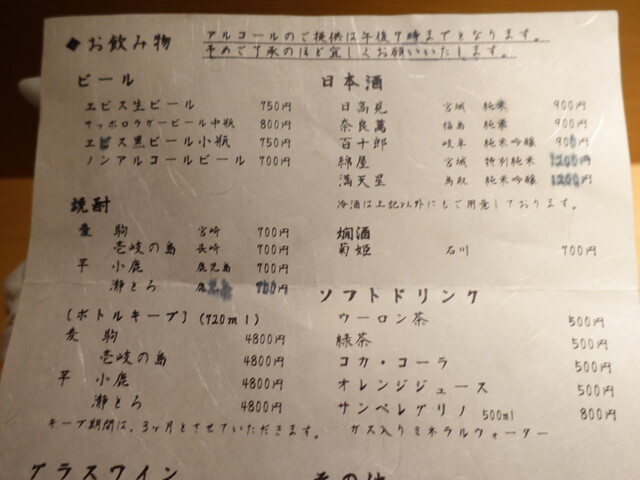 ◆お飲み物
アルコールのご提供は午後7時までとなります。
予めご了承のほど宜しくお願いいたします。
ビール
ヱビス生ビール 750円
サッポロラガービール中瓶 800円
ヱビス黒ビール小瓶 750円
ノンアルコールビール 700円
焼酎
麦 駒 宮崎 700円
壱岐の島 長崎 700円
芋 小鹿 鹿児島 700円
瀞とろ 700円
[ボトルキープ] (720ml)
麦 駒 4800円
壱岐の島 4800円
芋 小鹿 4800円
瀞とろ 4800円
キープ期間は、3ヶ月とさせていただきます。
グラスワイン
日本酒
日高見 宮城 純米 900円
奈良萬 福島 純米 900円
百十郎 岐阜 純米吟醸 900円
綿屋 宮城 特別純米 1200円
満天星 鳥取 純米吟醸 1200円
冷酒は上記以外にもご用意しております。
燗酒
菊姫 石川 700円
ソフトドリンク
ウーロン茶 500円
緑茶 500円
コカ・コーラ 500円
オレンジジュース 500円
サンペレグリノ 500ml 800円
ガス入りミネラルウォーター
その他